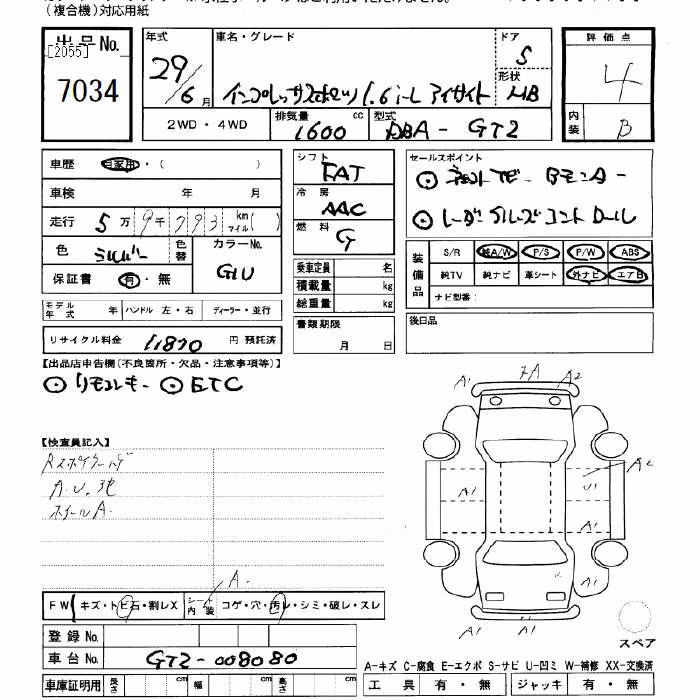 (複合機)対応用紙
出品No.
[2055]
7034
年式 車名・グレード ドア 5
29/6月 インプレッサスポーツ 1.6i-L アイサイト 形状 HB
評価点
4
内装 B
2WD・4WD 排気量 1600 cc 型式 DBA - GT2
車歴 自家用・( )
車検 年 月
走行 5万9千793 km マイル( )
色 シルバー 色替 カラーNo. G1U
保証書 有・無
モデル年式 年 ハンドル 左・右 ディーラー・並行
リサイクル料金 11870 円 預託済
シフト FAT
冷房 AAC
燃料 G
乗車定員 名
積載量 kg
総重量 kg
書類期限
月 日
セールスポイント
レーダークルーズコントロール
装備品 S/R 純A/W P/S P/W ABS
純TV 純ナビ 革シート 外ナビ エアB
ナビ型番:
後日品
【出品店申告欄(不良箇所・欠品・注意事項等)】
リモコンキー ETC
【検査員記入】
A.U.他
ホイールA.
A.
FW キズ・トビ石・割レX シート内装 コゲ・穴・汚レ・シミ・破レ・スレ
登録No.
車台No. GT2-008080
車庫証明用 長さ cm 幅 cm 高さ cm
A1 A2
A2
A1 U1
A1
A1
A1 A1
スペア
A-キズ C-腐食 E-エクボ S-サビ U-凹ミ W-補修 XX-交換済
工具 有・無 ジャッキ 有・無